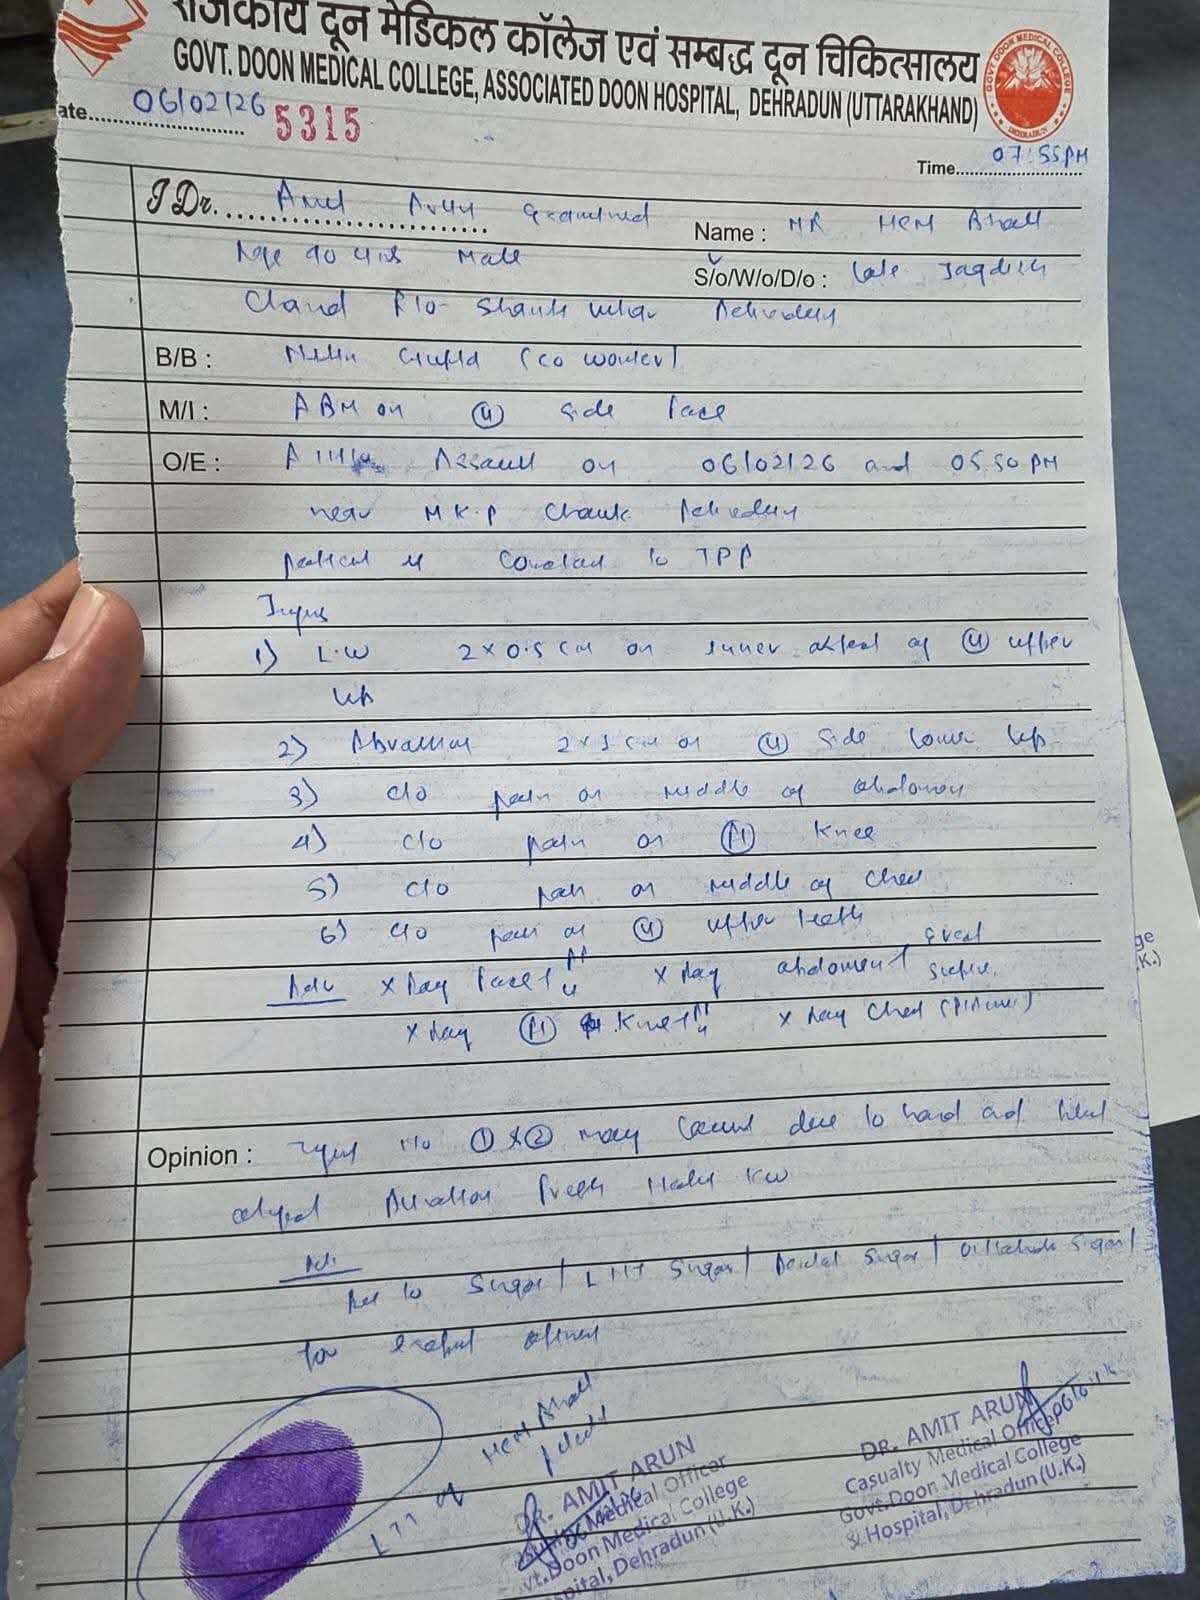 राजकीय दून मेडिकल कॉलेज एवं सम्बद्ध दून चिकित्सालय
GOVT. DOON MEDICAL COLLEGE, ASSOCIATED DOON HOSPITAL, DEHRADUN (UTTARAKHAND)
GOVT DOON MEDICAL COLLEGE DEHRADUN
ate 06/02/26 5315
Time 07:55 PM
I Dr. Amit Arun examined Name : MR HEM Bhatt
Age 40 yrs Male S/o/W/o/D/o : Late Jagdish
Chand R/o- Dehradun
B/B : Gupta (co worker)
M/I : ABM on side face
O/E : Assault on 06/02/26 and 05.50 PM
near M.K.P Chauk Dehradun
patient is to TPP
Injury
1) L.W 2 x 0.5 cm on inner aspect of upper
lip
2) Abrasion 2 x 1 cm on side lower lip
3) c/o pain on middle of abdomen
4) c/o pain on Knee
5) c/o pain on middle of chest
6) c/o pain on upper teeth
Adv X Ray face X Ray abdomen
X Ray Knee X Ray Chest
Opinion : Injury no ① & ② may caused due to hard and blunt
object Duration Fresh
Adv
Ref to Surgeon / Surgeon / Dental Surgeon / Surgeon /
for expert opinion
Hem Bhatt
DR. AMIT ARUN
Medical Officer
vt. Doon Medical College
spital, Dehradun (U.K.)
DR. AMIT ARUN
Casualty Medical Officer
Govt. Doon Medical College
& Hospital, Dehradun (U.K.)
ge
K.)